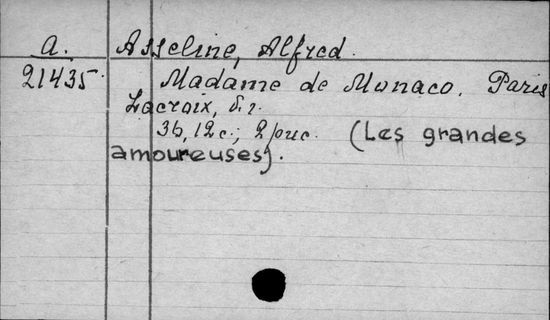 A. Asseline, Alfred.
21435. Madame de Monaco. Paris
Lacroix, б.г.
36, 12 с.; 2 рис. (Les grandes
amoureuses).